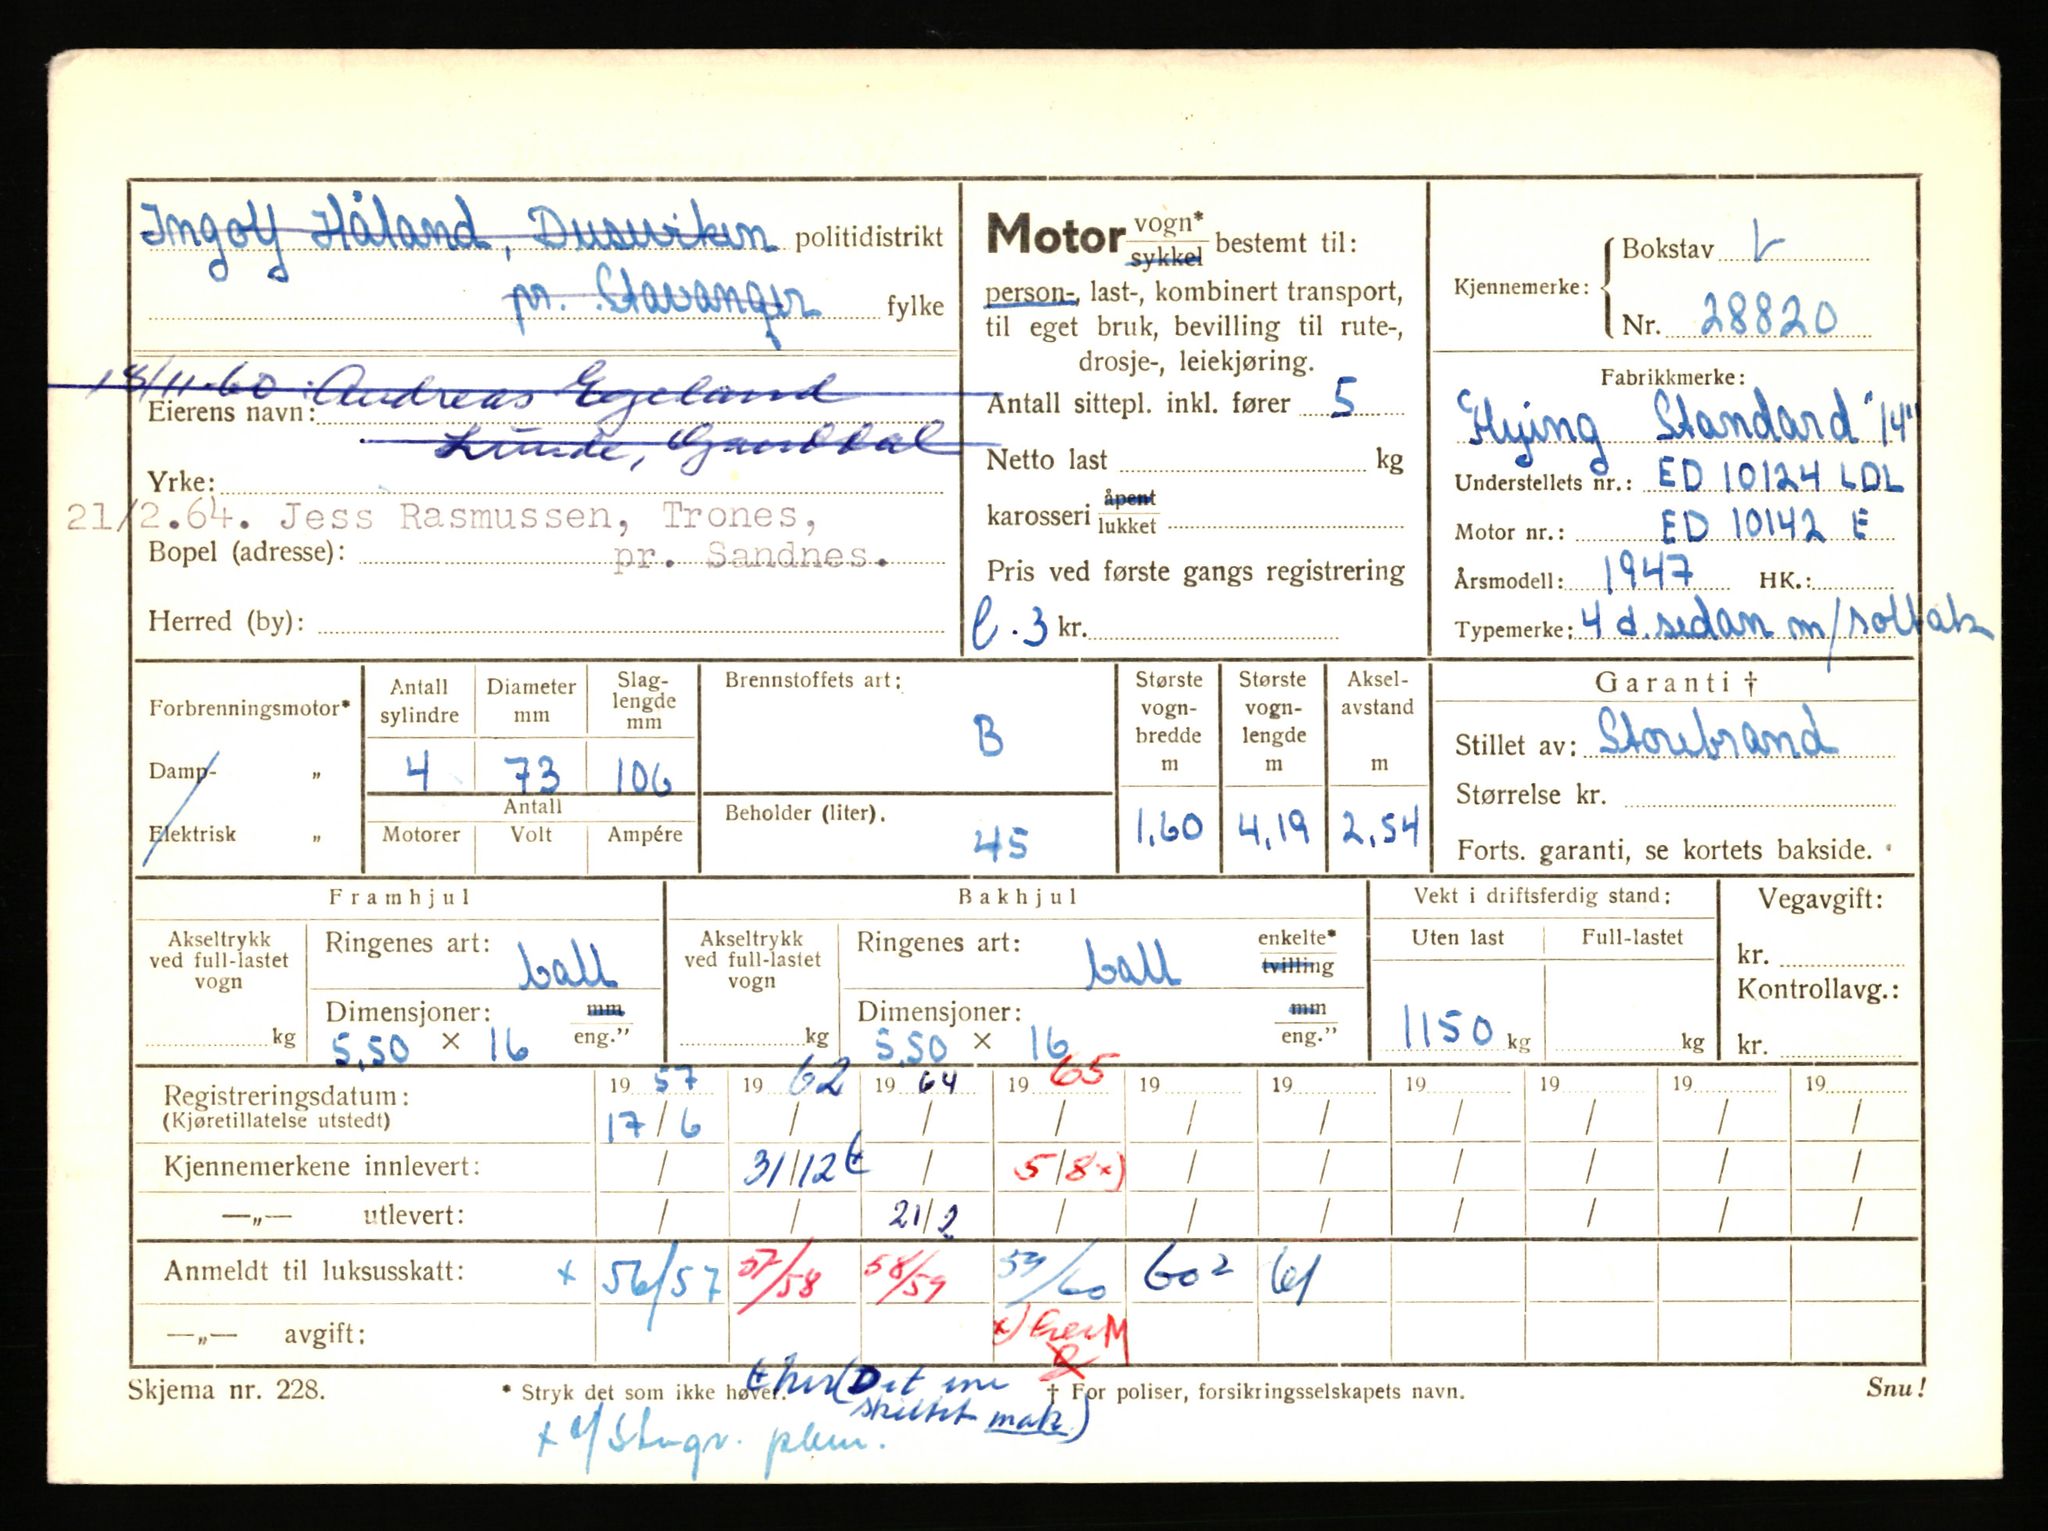 Ingolf Håland, Duseviken politidistrikt
pr. Stavanger fylke
18/11-60. Andreas Egeland
Eierens navn:
Lunde, Ganddal
Yrke:
21/2.64. Jess Rasmussen, Trones,
Bopel (adresse): pr. Sandnes.
Herred (by):
Motor vogn* sykkel bestemt til:
person-, last-, kombinert transport,
til eget bruk, bevilling til rute-,
drosje-, leiekjøring.
Antall sittepl. inkl. fører 5
Netto last kg
karosseri åpent lukket
Pris ved første gangs registrering
l.3 kr.
Kjennemerke: Bokstav L
Nr. 28820
Fabrikkmerke:
Flying Standard "14"
Understellets nr.: ED 10124 LDL
Motor nr.: ED 10142 E
Årsmodell: 1947 HK.:
Typemerke: 4 d. sedan m/soltak
Forbrenningsmotor*
Damp- „
Elektrisk „
Antall sylindre Diameter mm Slag-lengde mm
4 73 106
Antall
Motorer Volt Ampére
Brennstoffets art:
B
Beholder (liter).
45
Største vogn-bredde m
1,60
Største vogn-lengde m
4,19
Aksel-avstand m
2,54
Garanti †
Stillet av: Storebrand
Størrelse kr.
Forts. garanti, se kortets bakside.
Framhjul
Akseltrykk ved full-lastet vogn kg
Ringenes art: ball
Dimensjoner: mm
5,50 × 16 eng.”
Bakhjul
Akseltrykk ved full-lastet vogn kg
Ringenes art: ball enkelte* tvilling
Dimensjoner: mm
5,50 × 16 eng.”
Vekt i driftsferdig stand:
Uten last Full-lastet
1150 kg kg
Vegavgift:
kr.
Kontrollavg.:
kr.
Registreringsdatum: 19 57 19 62 19 64 19 65 19 19 19 19 19 19
(Kjøretillatelse utstedt) 17/6 / / / / / / / / /
Kjennemerkene innlevert: / 31/12 / 5/8 x) / / / / / /
—„— utlevert: / / 21/2 / / / / / / /
Anmeldt til luksusskatt: x 56/57 57/58 58/59 59/60 60² 61
—„— avgift: x)
Skjema nr. 228. * Stryk det som ikke høver. † For poliser, forsikringsselskapets navn. Snu!
her (Det ene
skiltet mak.)